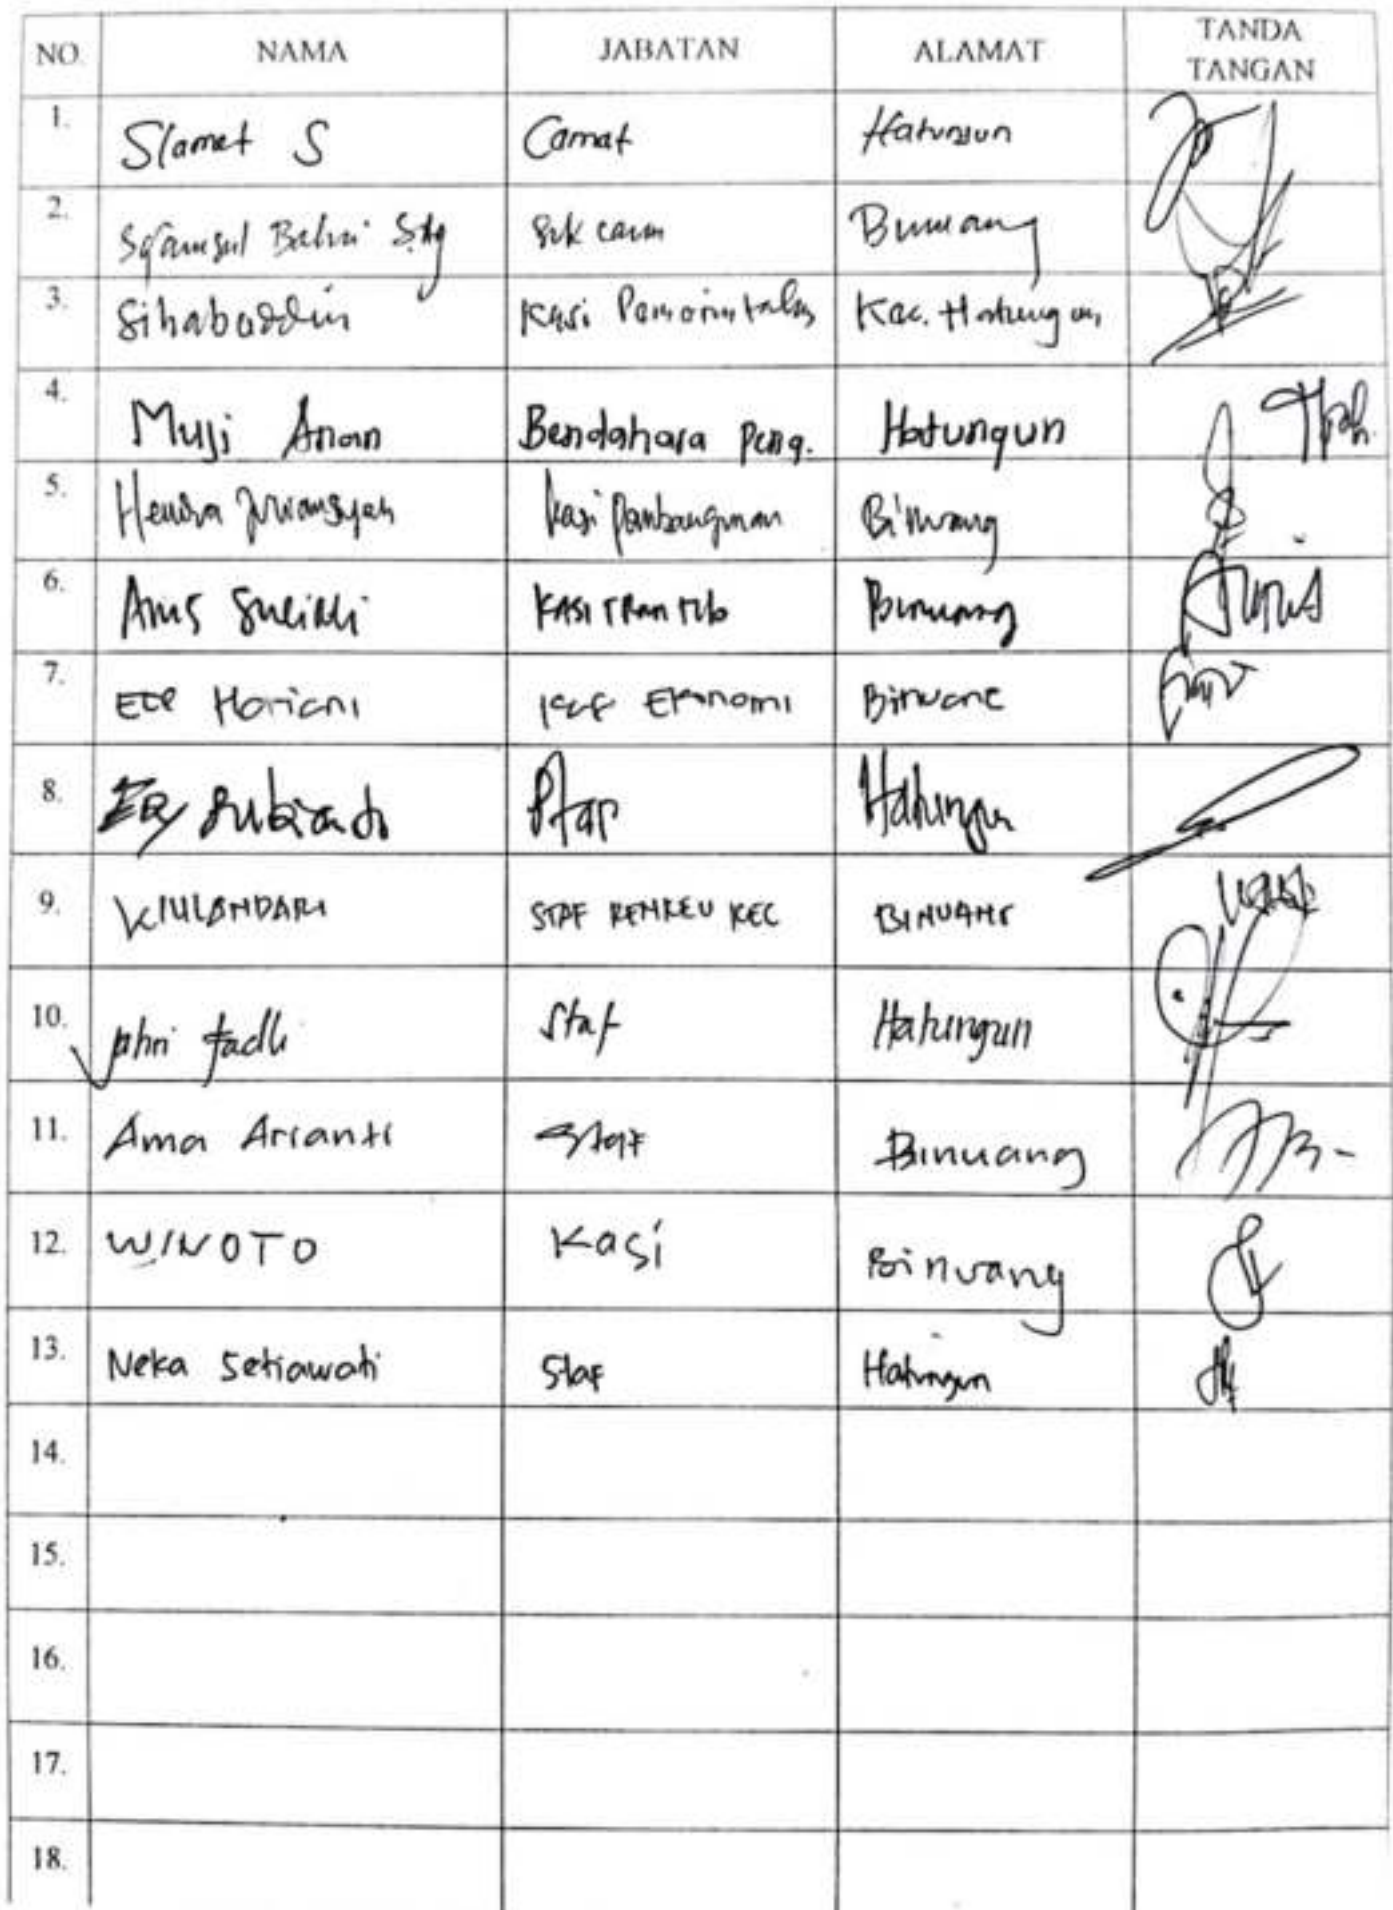 NO. NAMA JABATAN ALAMAT TANDA TANGAN
1. Slamet S Camat Hatungun
2. Syamsul Bahri S.Ag Sekcam Binuang
3. Sihabuddin Kasi Pemerintahan Kec. Hatungun
4. Muji Anan Bendahara Peng. Hatungun
5. Hendra Kasi Pembangunan Binuang
6. Anis KASI TRANTIB Binuang
7. Hariani Ekonomi Binuang
8. Staf Hatungun
9. WULANDARI STAF KEC BINUANG
10. Jahri Fadli Staf Hatungun
11. Ama Arianti Staf Binuang
12. WINOTO Kasi Binuang
13. Neka Setiawati Staf Hatungun
14.
15.
16.
17.
18.